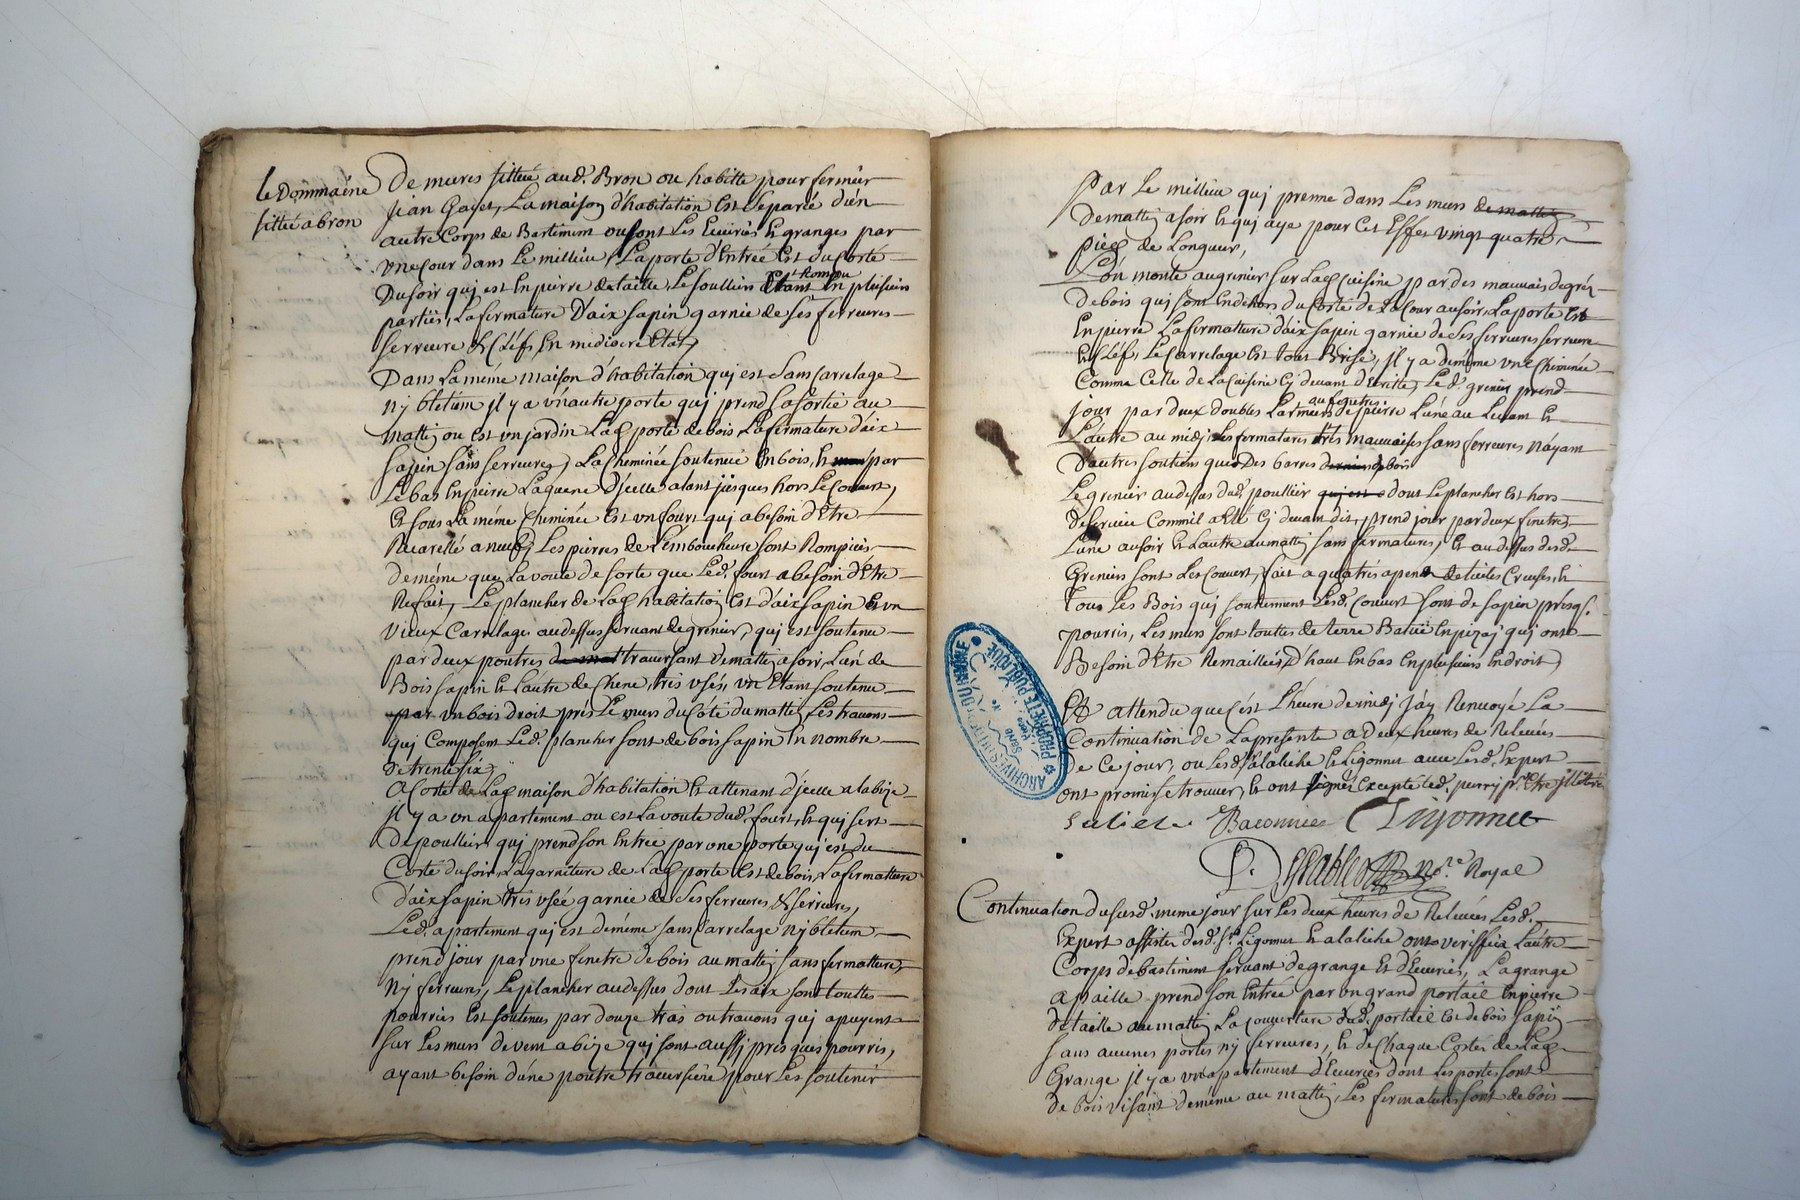 le Dommaine
sittué a bron
De mures sittué aud. Bron ou habitte pour fermier
Jean Gayet, La maison d'habitation Est séparéé d'un
autre Corps de Bastiment ou sont Les Ecuriés Et granges par
une Cour dans Le millieu, La porte d'Entréé Est du Costé
Du soir qui est En pierre de taille, Le soullier Etant Rompu En plusieurs
partiés, La firmature D'aix sapin garnie de ses ferrures
serrure & Cléf, En médiocre Etat,
Dans La même maison d'habitation qui est sans Carrelage
ny bletum il y a un autre porte qui prend sa sortie au
mattin ou est un jardin Lad. porte de bois, La firmature d'aix
sapin sans serrures, La Cheminéé soutenue En bois, Et par
Le bas En pierre, Laguene D'icelle alant jusques hors Le Couvert,
Et sous La même Cheminéé Est un four qui a besoin d'Etre
Racarellé a neuf, Les pierres de L'embouchure sont Rompues
de méme que La voute de sorte que Led. four a besoin d'Etre
Refait, Le plancher de Lad. habitation Est d'aix sapin Et un
vieux Carrelage au dessus servant de grenier, qui est soutenu
par deux poutres traversant De mattin a soir, L'un de
Bois sapin Et L'autre de Chene, trés usés, un Etant soutenu
par un bois droit prés Le murs du Côté du mattin, Les travons
qui Composent Led. plancher sont de bois sapin En nombre
de trente six,
A Costé de Lad. maison d'habitation Et attenant d'icelle a la bize
Il y a un appartement ou est La voute dud. fourt, Et qui sert
De poullier, qui prend son Entréé par une porte qui est du
Costé du soir, La garniture de Lad. porte Est de bois, La firmature
D'aix sapin trés uséé garnie de ses ferrures & serrures,
Led. apartement qui est de méme sans Carrelage ny bletum
prend jour par une fenetre de bois au mattin sans fermature,
Ny ferrures, Le plancher au dessus dont Les aix sont touttes
pourries Est soutenus par douze tràs ou travons qui apuyent
sur Les murs de vent a bize qui sont aussi presques pourris,
ayant besoin d'une poutre traversiere pour Les soutenir
par Le millieu qui prenne dans Les murs de mattin
De mattin a soir Et qui aye pour Cet Effet vingt quatre
pied de Longueur,
L'on monte au grenier sur Lad. Cuisine par des mauvais degréz
De bois qui sont En dehors du Costé de La Cour au soir, La porte Est
En pierre La firmature d'aix sapin garnie de ses ferrures serrure
Et Cléf, Le Carrelage Est tout Brisé, Il y a de méme une Cheminéé
Comme Celle de La Cuisine Cy devant d'Ecritte, Led. grenier prend
jour par deux doubles Larmiers de pierre L'une au Levant Et
L'autre au midi, Les fermatures trés mauvaises sans ferrures n'ayant
D'autres soutiens que Des barres de bois
Le grenier au dessus dud. poullier dont Le plancher Est hors
de service Comm'il a Eté Cy devant dit, prend jour par deux finetres
L'une au soir Et L'autre au mattin sans fermatures, Et au dessus desd.
Greniers sont Les Couvert, fait a quatres apend de tuiles Creuses, Et
Tous Les Bois qui soutienment Lesd. Couvert sont de sapin presq.
pourris, Les murs sont touttes de terre Batue En pizay qui ont
Besoin d'Etre Remailléés, d'haut En bas En plusieurs Endroit,
Et attendu que C'ést L'heure de midi J'ay Renvoyé La
Continuation de La presente a deux heures de Relevéés
De Ce jour, ou Lesd. alaliche Et Ligonnet avec Lesd. Expert
ont promis se trouver, Et ont signés Excepté Led. perry pr. Etre illitéré
Baconnier Ligonnet
Nore. Royal
Continuation du susd. meme jour sur Les deux heures de Relevéés Lesd.
Expert assistés desd. sr. Ligonnet Et alaliche ont veriffiéz L'autre
Corps de bastiment servant de grange Et d'Ecuriés, La grange
a paille prend son Entréé par un grand portail En pierre
de taille au mattin La couverture dud. portail Est de bois sapin
sans aucunes portes ny ferrures, Et de Chaque Costez de Lad.
Grange il y a un apartement d'Ecuriés dont Les portes sont
de bois visant de méme au mattin, Les fermatures sont de bois
ARCHIVES
DU RHONE
PROPRIETE PUBLIQUE